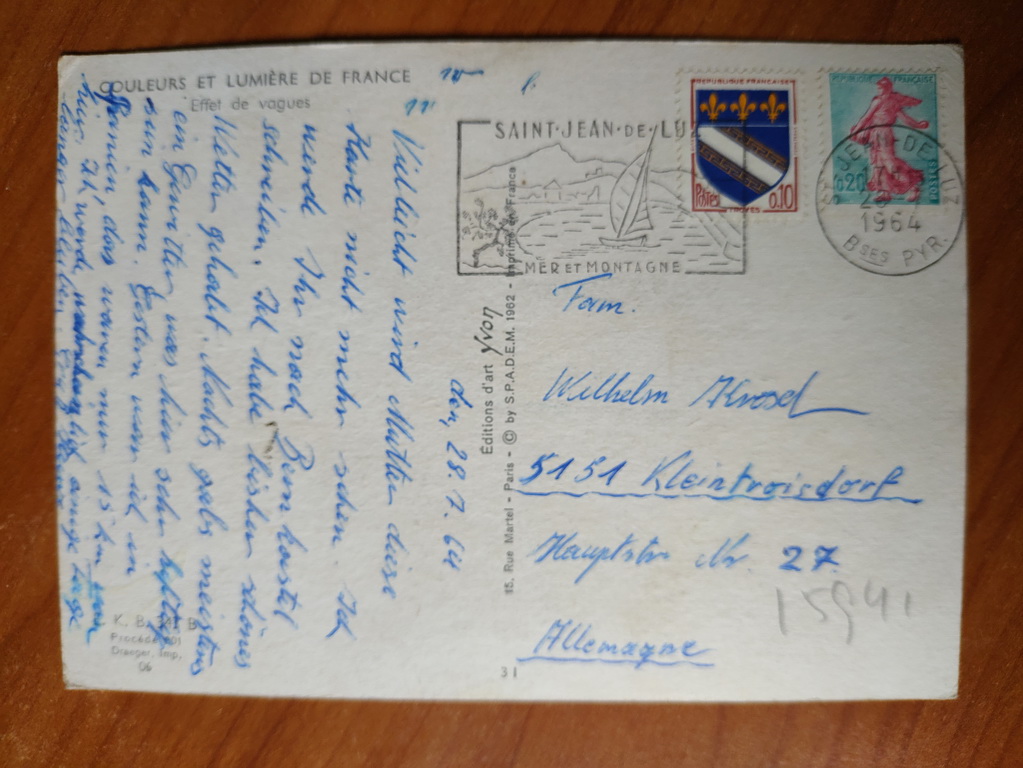 COULEURS ET LUMIÈRE DE FRANCE
Effet de vagues
den, 28.7.64
Vielleicht wird Mutter diese
Karte nicht mehr sehen. Ich
werde Ihr nach Bernkastel
schreiben. Ich habe bisher schönes
Wetter gehabt. Nachts gabs meistens
ein Gewitter was hier sehr heftig
sein kann. Gestern war ich in
Spanien, das waren nur 15 km von
hier. Ich werde noch einige Tage
länger bleiben.
K. B.
Procédé 301
Draeger, Imp.
06
Editions d'art Yvon
15, Rue Martel - Paris - © by S.P.A.D.E.M. 1962 - Imprimé en France
31
SAINT·JEAN·DE·LUZ
MER ET MONTAGNE
REPUBLIQUE FRANÇAISE
POSTES
0,10
TROYES
REPUBLIQUE FRANÇAISE
0,20
POSTES
ST JEAN-DE-LUZ
1964
BSES PYR.
Fam.
Wilhelm
5151 Kleintroisdorf
Hauptstr Nr. 27
Allemagne
15941